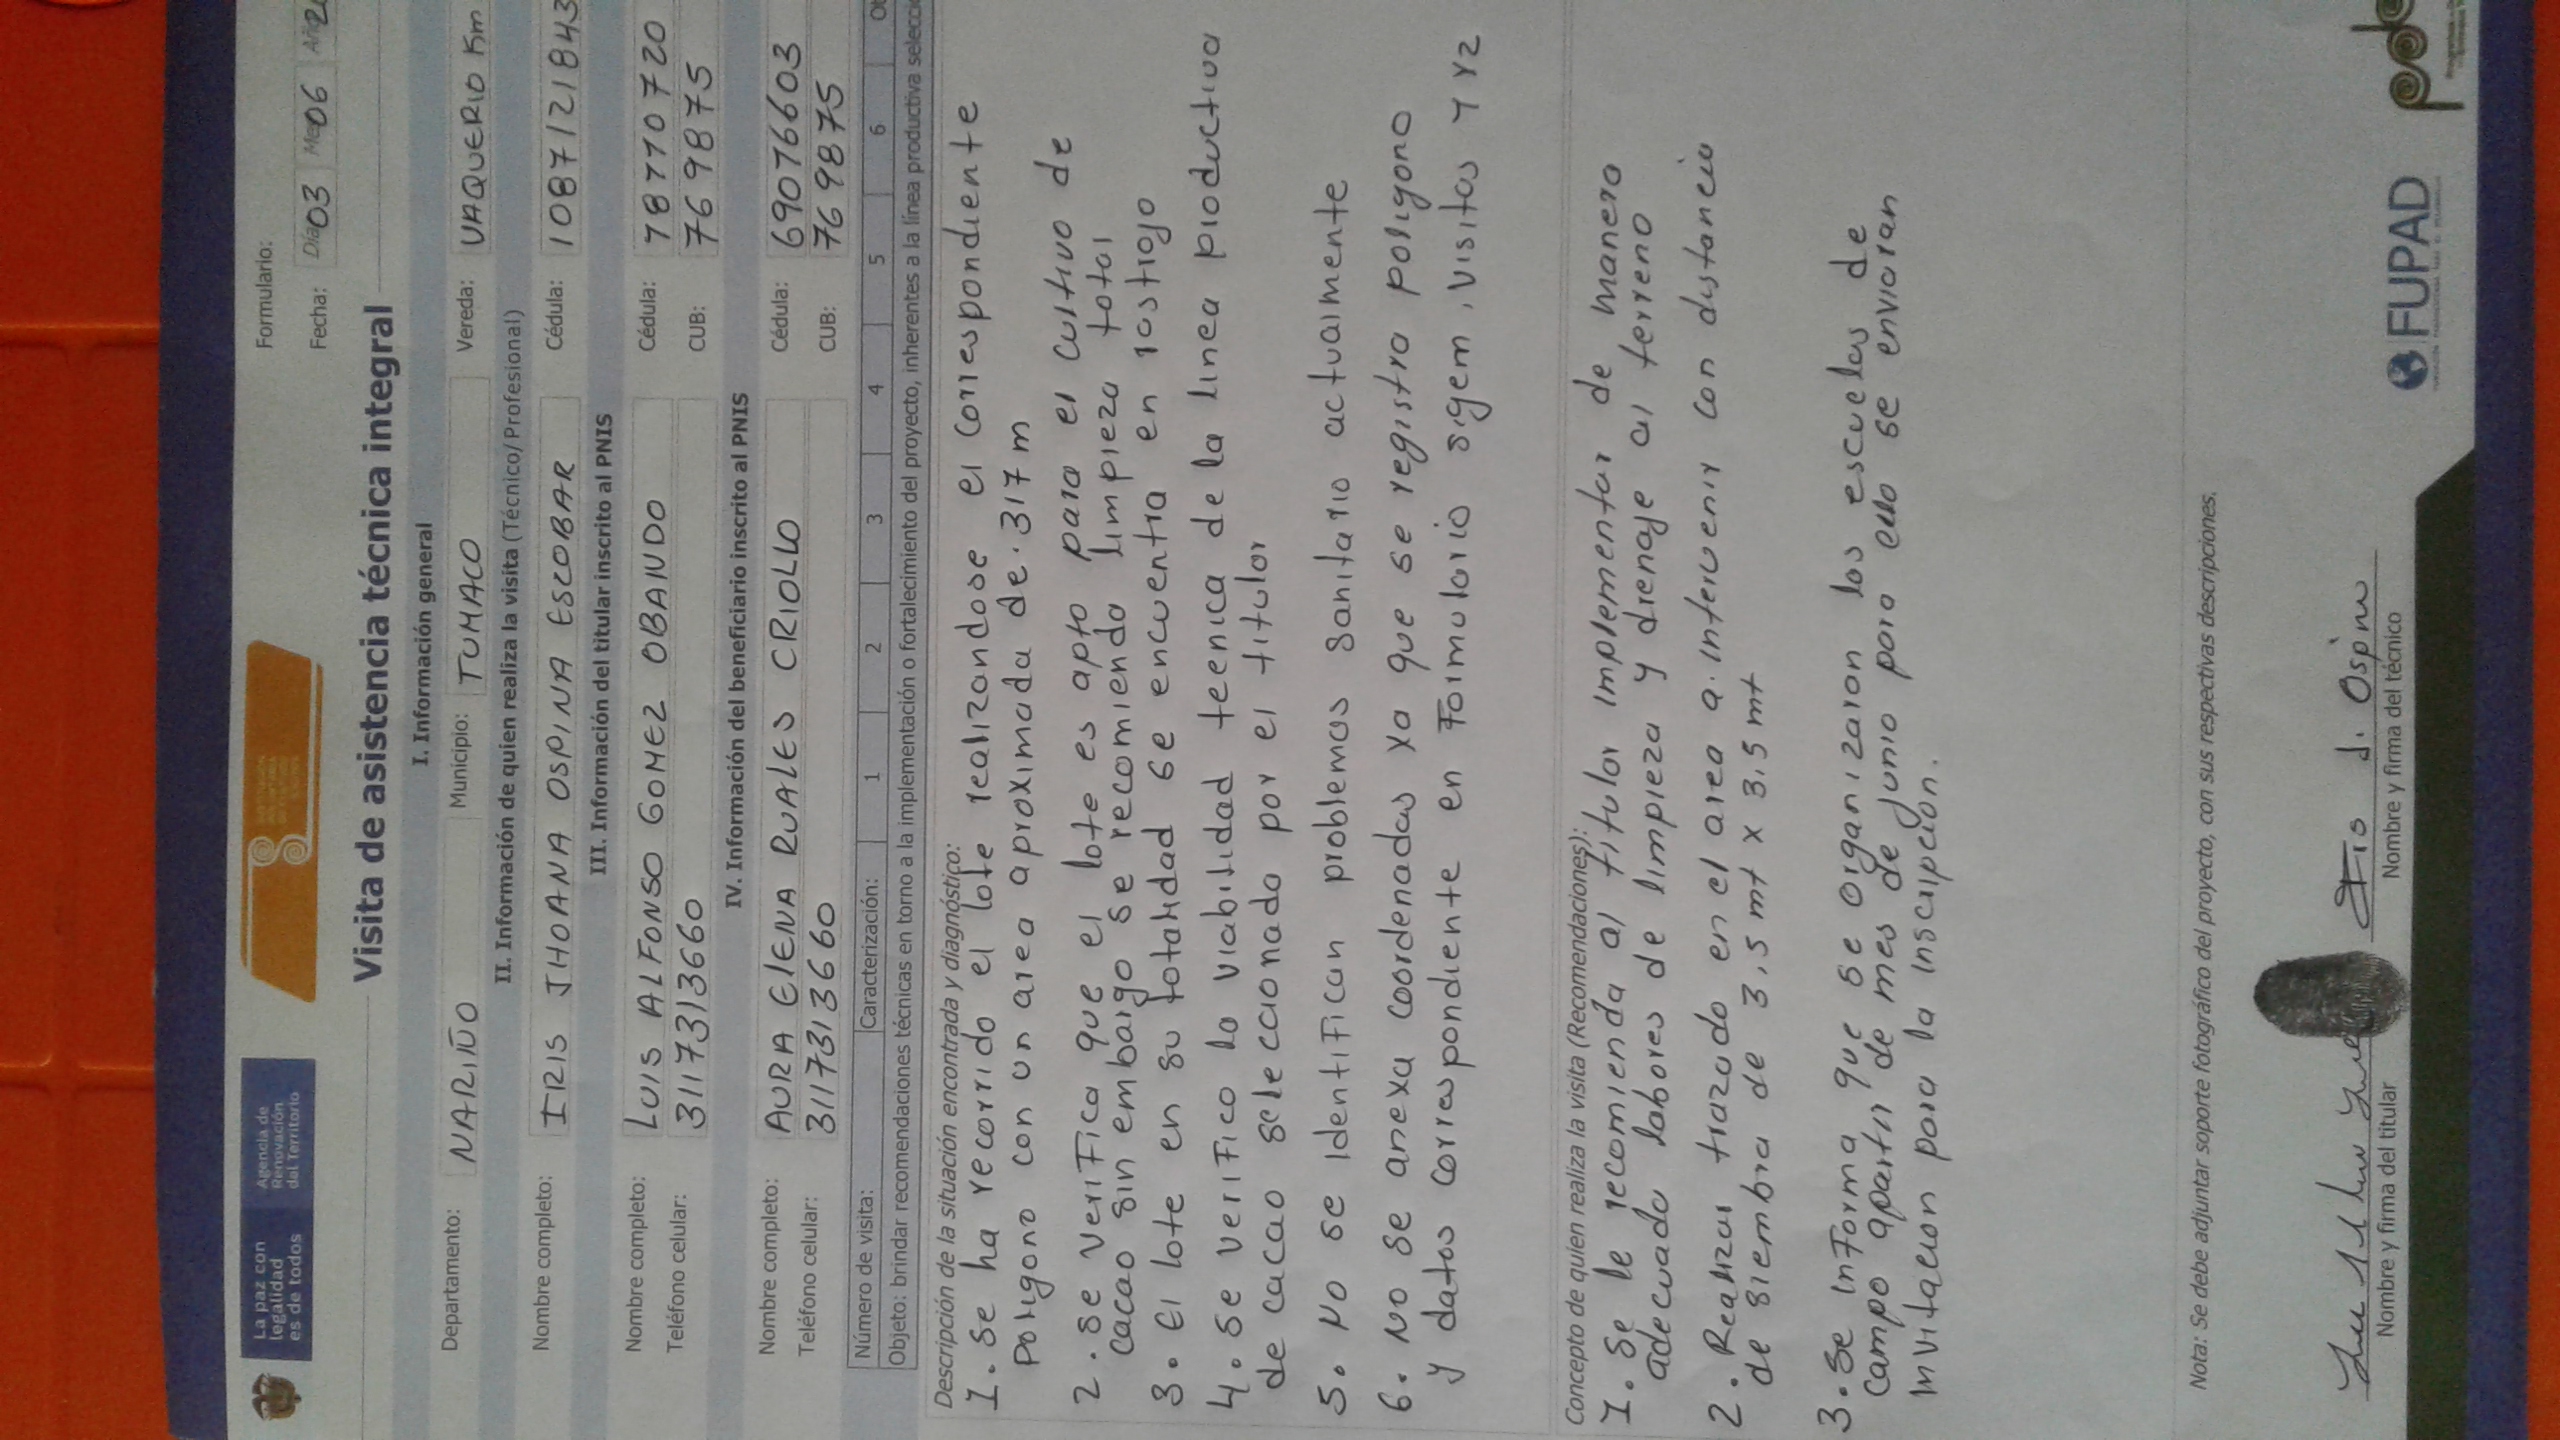 La paz con
legalidad
es de todos
Agencia de
Renovación
del Territorio
Formulario:
Fecha: Día 03 Mes 06 Año 2
Visita de asistencia técnica integral
I. Información general
Departamento: NARIÑO Municipio: TUMACO Vereda: VAQUERIO Km
II. Información de quien realiza la visita (Técnico/Profesional)
Nombre completo: IRIS JHOANA OSPINA ESCOBAR Cédula: 1087121843
III. Información del titular inscrito al PNIS
Nombre completo: LUIS ALFONSO GOMEZ OBANDO Cédula: 78770720
Teléfono celular: 3117313660 CUB: 7698775
IV. Información del beneficiario inscrito al PNIS
Nombre completo: AURA ELENA RUALES CRIOLLO Cédula: 69076603
Teléfono celular: 3117313660 CUB: 769875
Número de visita: Caracterización: 1 2 3 4 5 6
Objeto: brindar recomendaciones técnicas en torno a la implementación o fortalecimiento del proyecto, inherentes a la línea productiva selecci
Descripción de la situación encontrada y diagnóstico:
1. Se ha recorrido el lote realizandose el correspondiente
Poligono con un area aproximada de. 317 m
2. Se verifica que el lote es apto para el cultivo de
cacao sin embargo se recomienda limpieza total
3. El lote en su totalidad se encuentra en rastrojo
4. Se verifico la viabilidad tecnica de la linea productiva
de cacao seleccionado por el titular
5. No se identifican problemas sanitario actualmente
6. No se anexa coordenadas ya que se registra poligono
y datos correspondiente en formulario sigem, visitas 1 y 2
Concepto de quien realiza la visita (Recomendaciones):
1. Se le recomienda al titular implementar de manera
adecuada labores de limpieza y drenaje al terreno
2. Realizar trazado en el area a. intervenir con distancia
de siembra de 3,5 mt x 3,5 mt
3. Se informa que se organizaron las escuelas de
campo apartir de mes de junio para ello se enviaran
invitacion para la inscripcion.
Nota: Se debe adjuntar soporte fotográfico del proyecto, con sus respectivas descripciones.
Iris J. Ospina
Nombre y firma del titular Nombre y firma del técnico
FUPAD